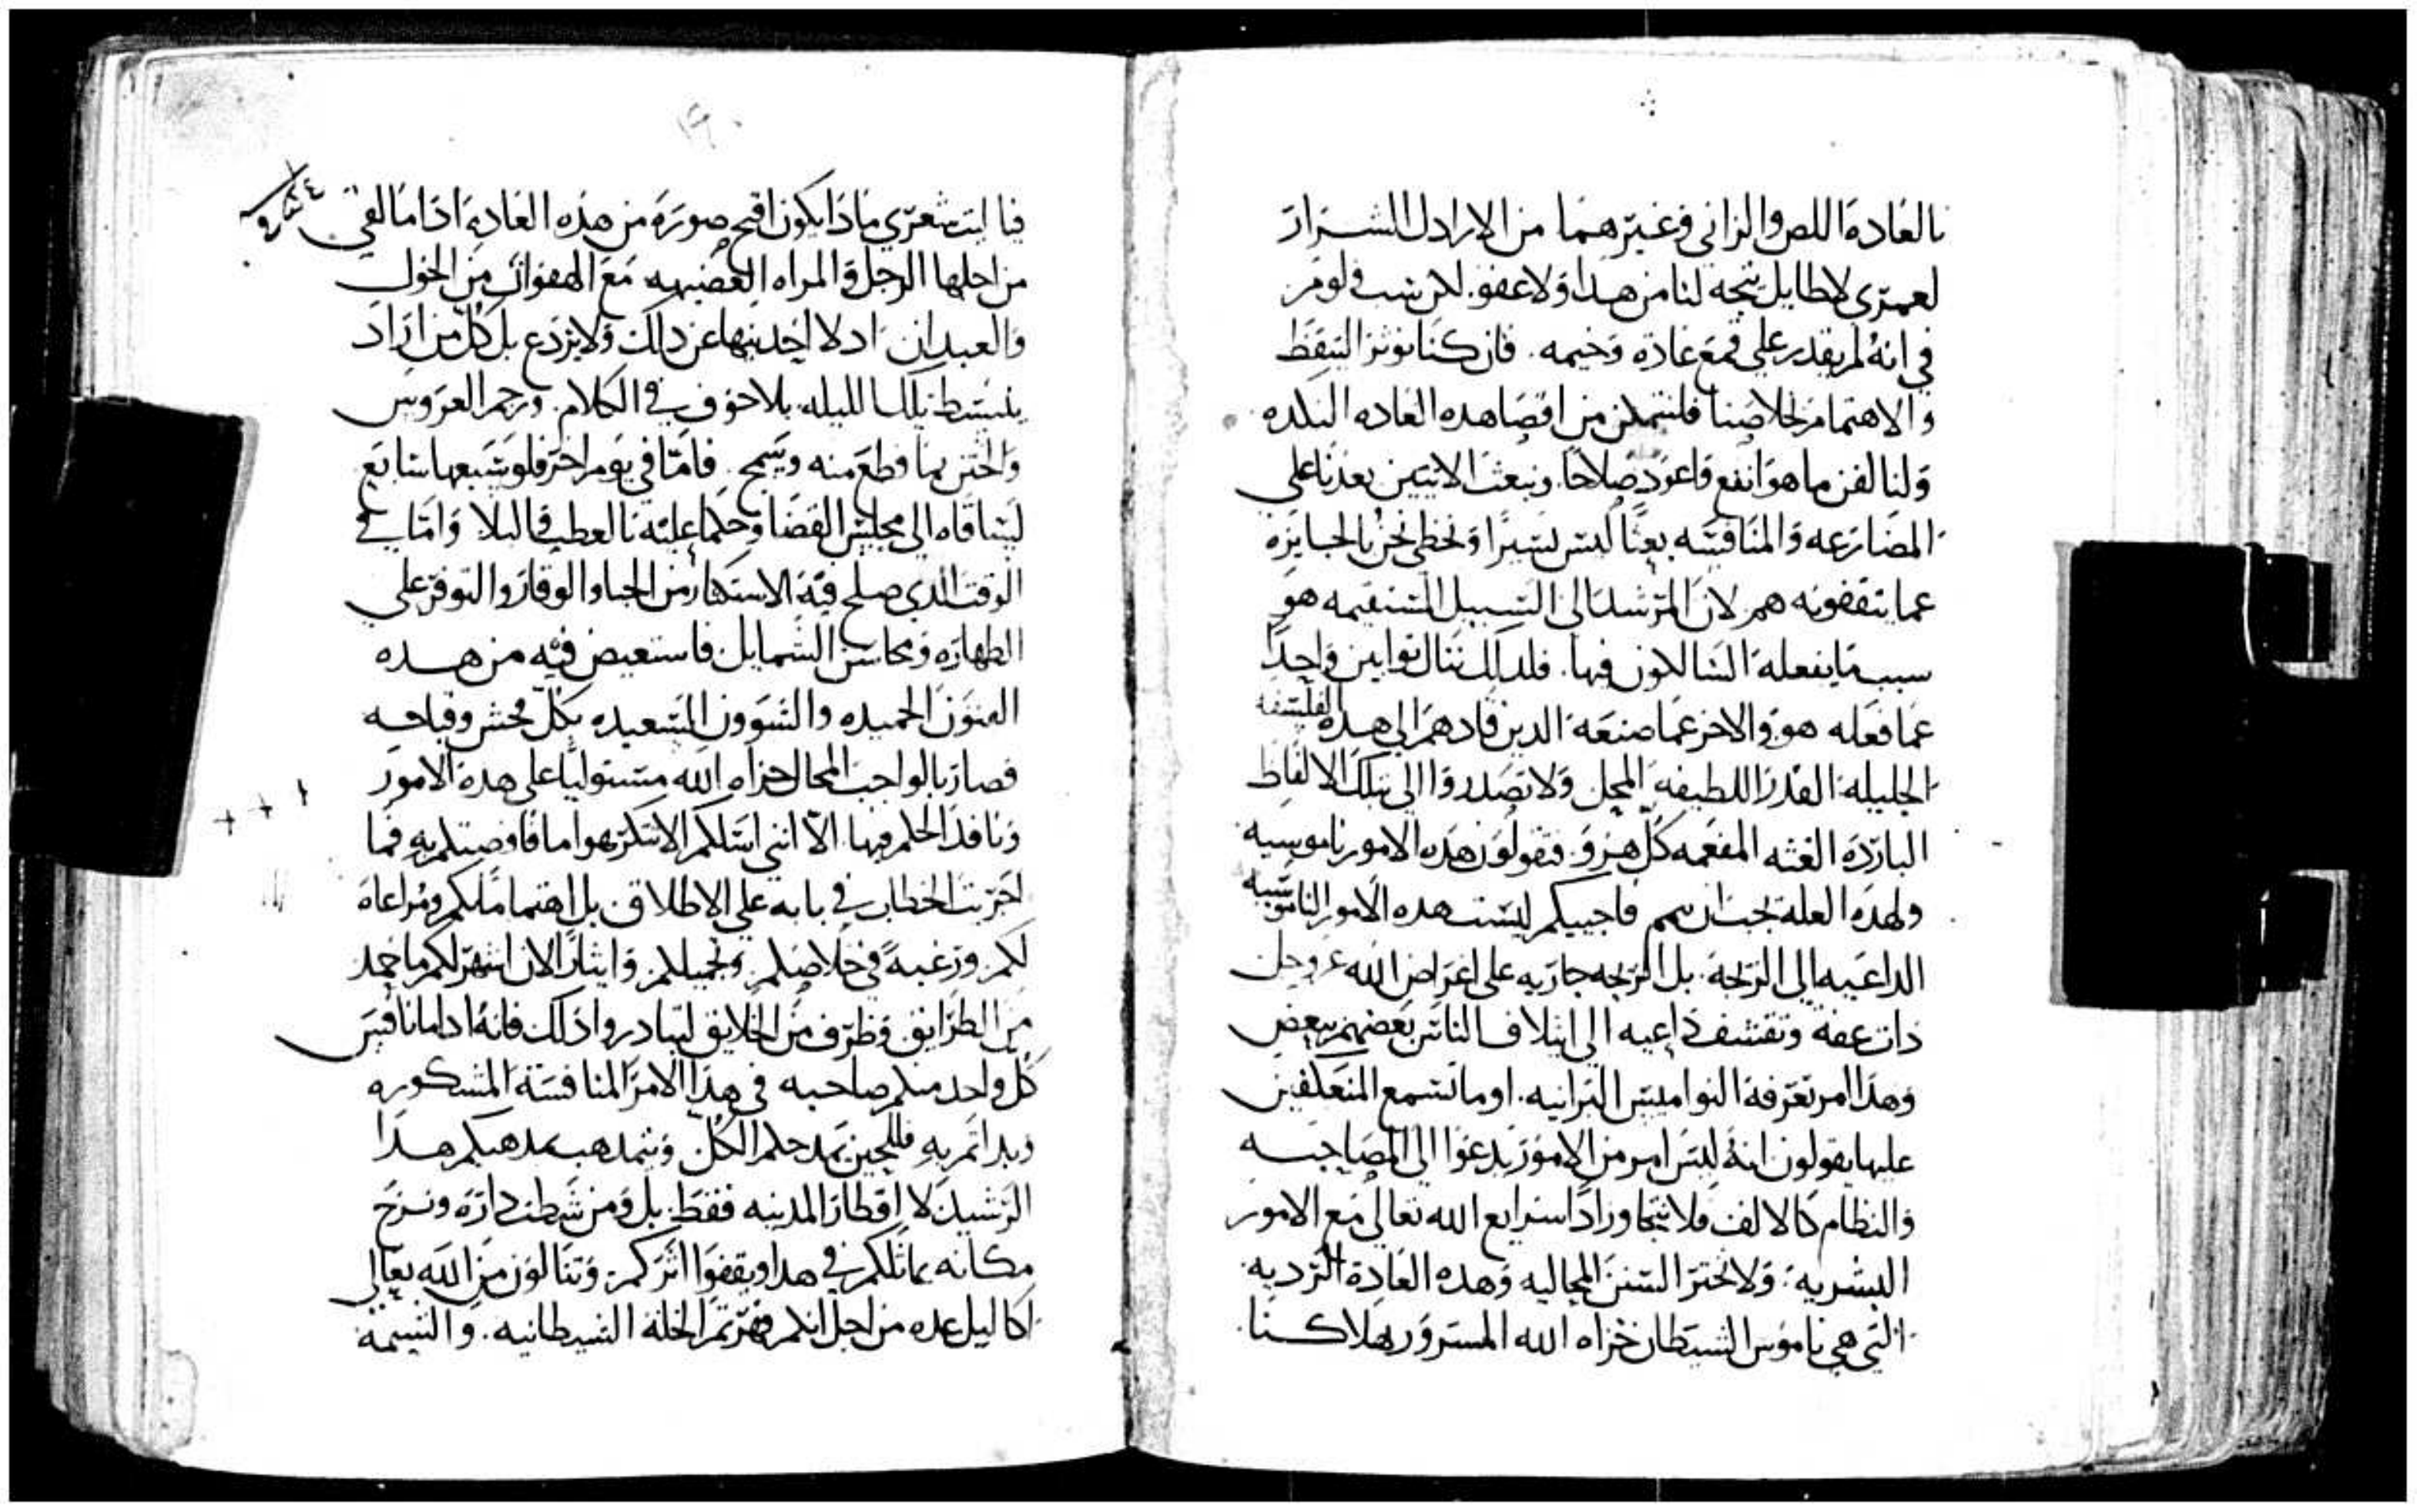 بالعادة اللص والزاني وغيرهما من الارادل الشرار
لعمري لاطايل يتجه لنا من هدا ولا عفو. لكن شب ولوم
في انه لم يقدر علي قمع عادة وخيمه. فان كنا نوثر التيقظ
والاهتمام بخلاصنا فلنتمكن من اقصا هده العاده النكده
ولنالفن ما هو انفع واعود صلاحا. ونبعث الاتيين بعدنا علي
المضارعه والمنافسه بعثا ليس يسيرا ونحظي نحن بالجايزه
عما يتقفونه هم لان المرشد الي السبيل المستقيمه هو
سبب ما يفعله السالكون فيها. فلدلك ننال ثوابين واحدا
عما فعله هو والاخر عما صنعه الدين قادهم الي هده الفلسفه
الجليلة القدر اللطيفة المحل ولا تصدروا الي تلك الالفاظ
الباردة الغثه المفعمه كل هزو. فتقولون هده الامور ناموسيه
ولهده العله يجب ان فاجيبكم ليست هده الامور الناموسيه
الداعيه الي الزيجة. بل الزيجه جاريه علي اغراض الله عز وجل
دات عفة وتقشف داعيه الي ايتلاف الناس بعضهم ببعض
وهدا امر تعرفه النواميس البرانيه. اوما تسمع المتعلقين
عليها يقولون انه ليس امر من الامور يدعوا الي المصاحبه
والنظام كالالف فلا نتجاوز ادا شرايع الله تعالي مع الامور
البشرية. ولا نختر السنن المحاليه وهده العادة الرديه
التي هي ناموس الشيطان خزاه الله المسرور بهلاكنا
١٩٠
فيا ليت شعري مادا يكون اقبح صورة من هده العادة ادا ما القي
من اجلها الرجل والمراه مع الهفوات من الخول
والعبدان اد لا احد ينهاعن دلك ولا يردع بل كل من اراد
ينبسط تلك الليله بلا خوف في الكلام. ورجم العروس
والختن بما قطع منه ويسمج. فاما في يوم اخر فلو شبعها سابع
لساقاه الي مجلس القضا وحكما عليه بالعطب والبلا واما في
الوقت الدي صلح فيه الاستكثار من الحيا والوقار والتوفر علي
الطهاره ومحاسن الشمايل فاستعيض فيه من هده
الفنون الحميده والشوون السعيده بكل فحش وقباحه
فصار بالواجب المحال خزاه الله مستوليا علي هدة الامور
ونافد الحكم فيها. الا انني اسلكم الا تكرهوا ما فاوضتكم به فما
اجريت الخطاب في بابه علي الاطلاق بل اهتماما بكم ومراعاة
لكم ورغبة في خلاصكم وتجميلكم وايثارا لان اشهر لكم ما حمد
من الطرايق وظرف من الخلايق لتبادروا ادلك فانه ادا ما نافس
كل واحد منكم صاحبه في هدا الامر المنافسة المشكوره
وبدا تم به فللحين يمدحكم الكل ويتمدهب بمدهبكم هدا
الرشيد لا اقطار المدينه فقط. بل ومن شطت داره ونزح
مكانه يماثلكم في هدا ويقفوا اثركم. وتنالون من الله تعالي
اكاليل عده من اجل انكم قهرتم الخلة الشيطانيه. والشيمة